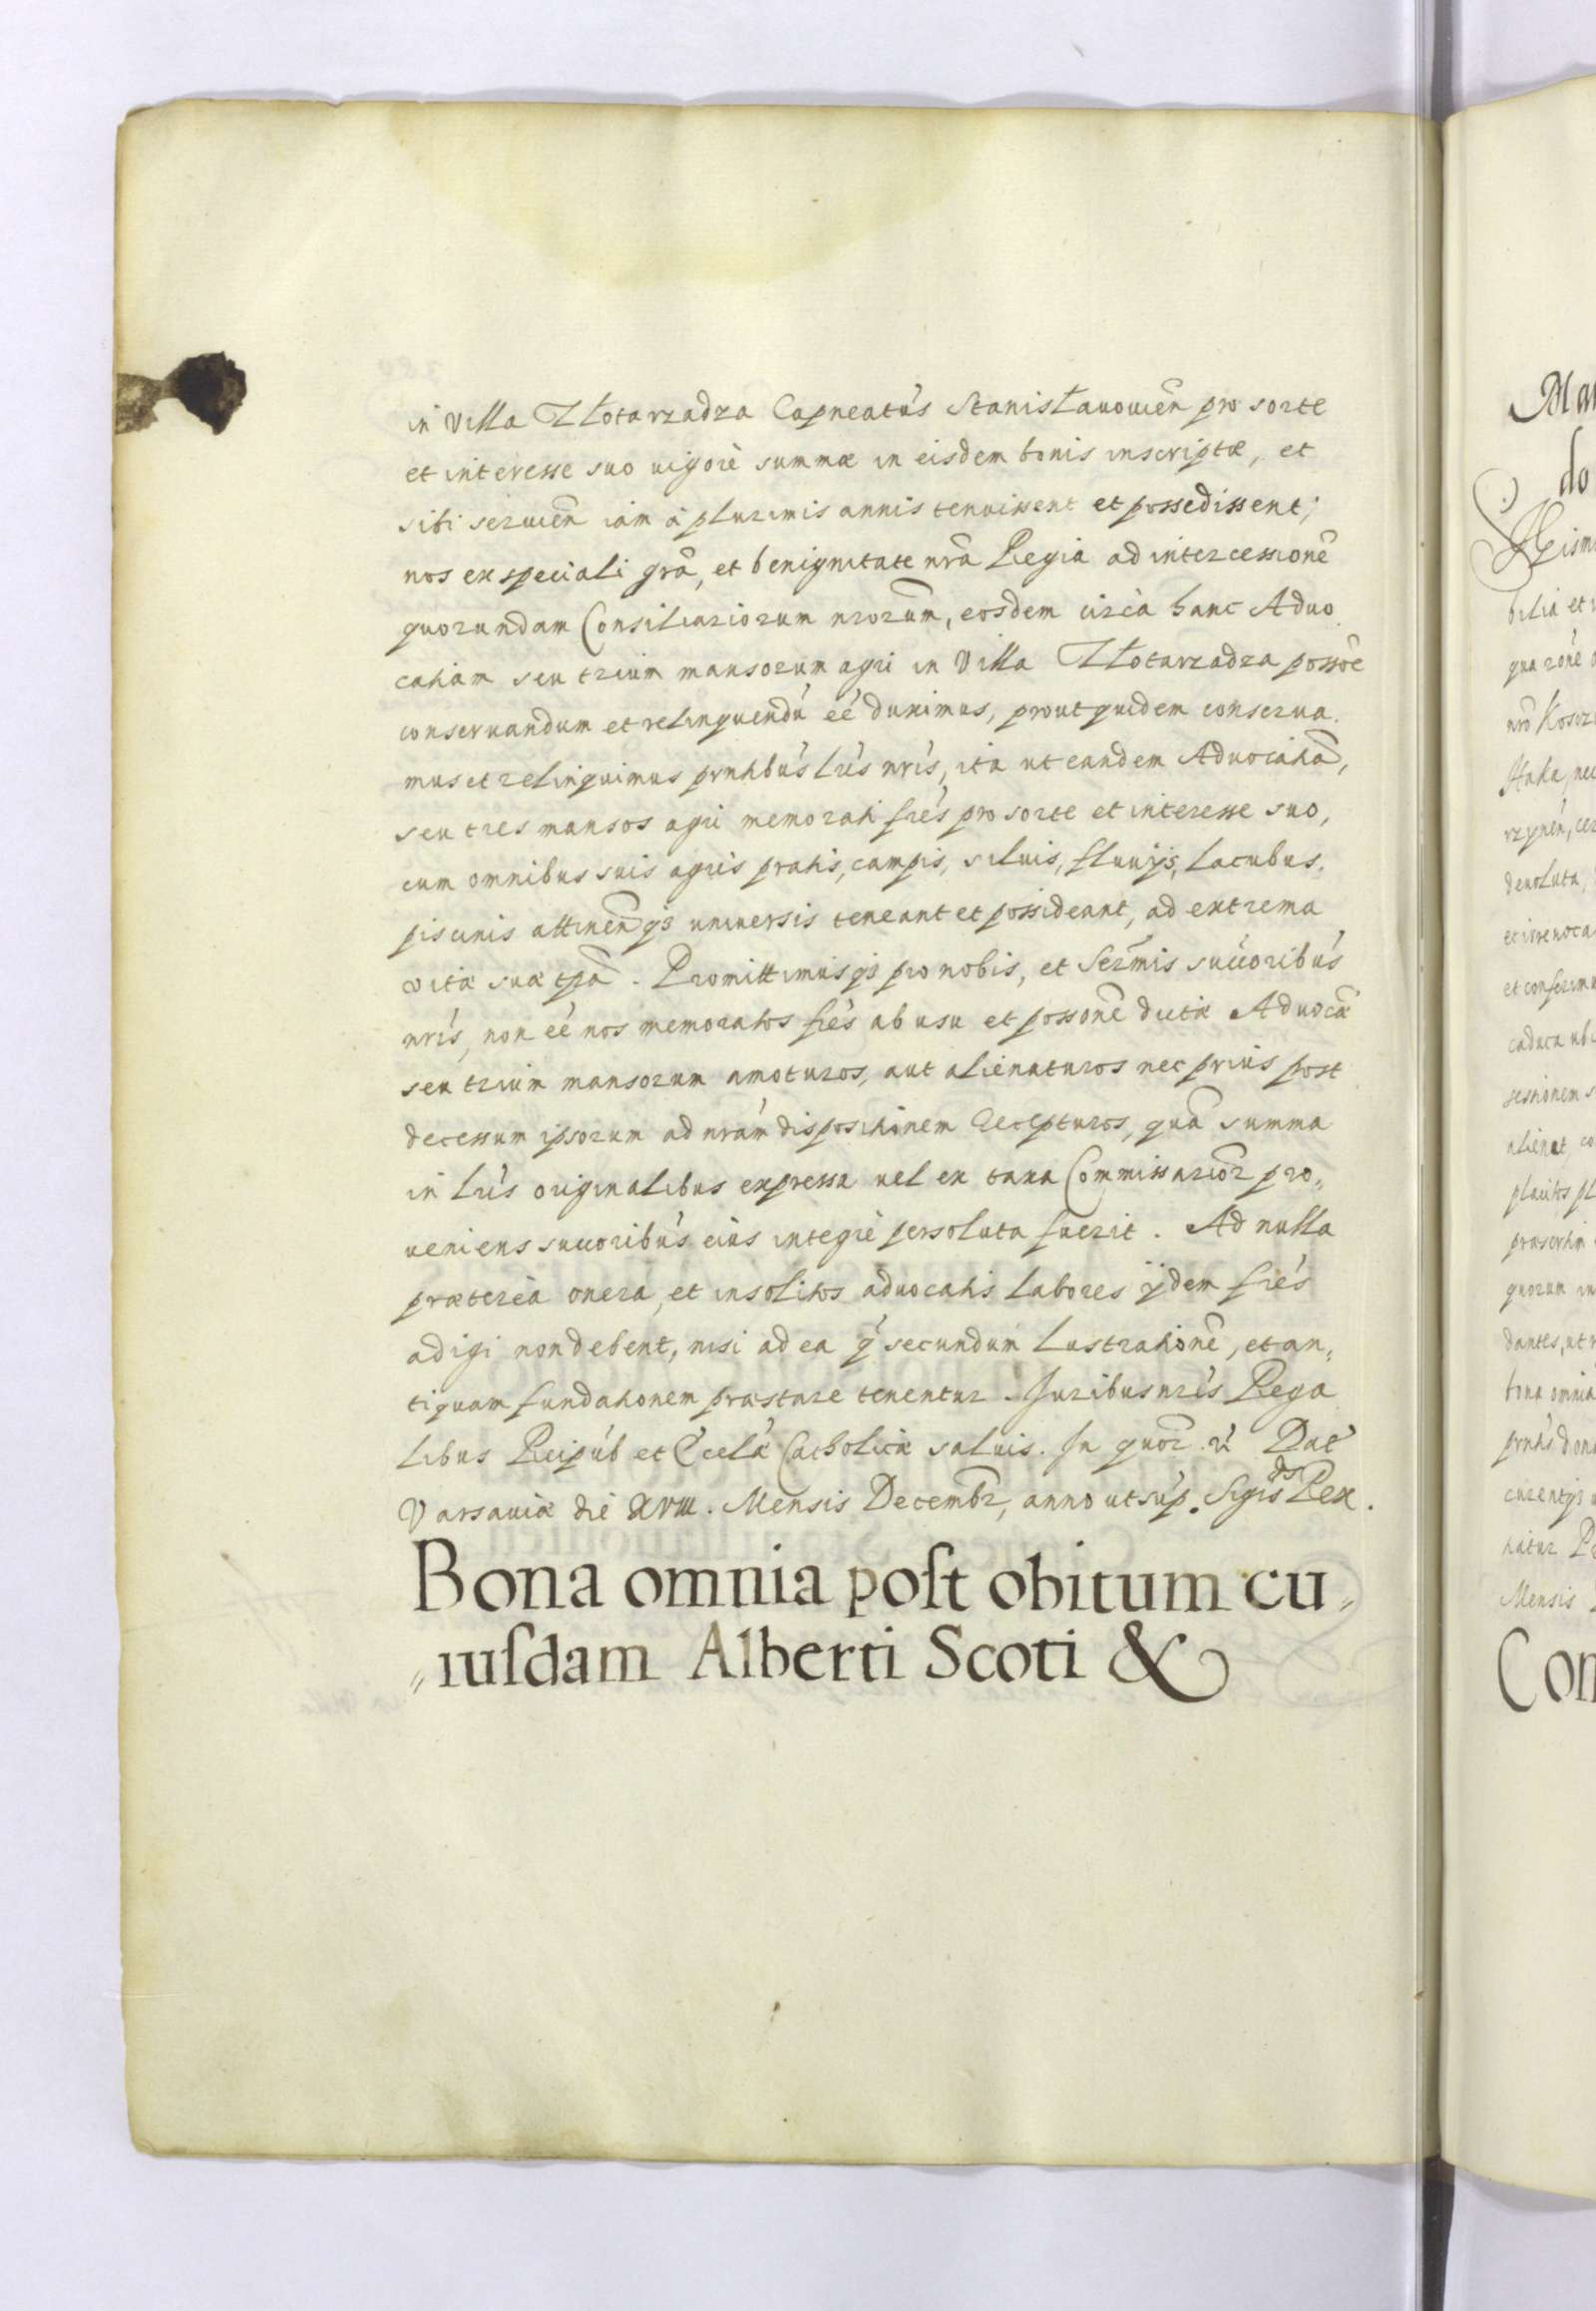 in Villa Złotarzadza Capneatûs Stanisławouien̄ pro sorte
et interesse suo uigorè summæ in eisdem bonis inscriptæ, et
sibi seruien̄ iàm à plurimis annis tenuissent et possedissent;
nos ex speciali grã, et benignitate nrã Regia ad intercessionẽ
quorundam Consiliariorum nrorum̄, eosdem circà hanc Aduo
catiam seu trium mansorum agri in Villa Złotarzadza possoẽ
conseruandum et relinquendú eé duximus, prout quidem conserua.
mus et relinquimus pr̃ntibús Lrís nrís, ita ut eandem Aduocatiã,
seu tres mansos agri memorati frés pro sorte et interesse suo,
cum omnibus suis agris pratis, campis, siluis, fluuijs, lacubus,
piscinis attinen̄qȝ uniuersis teneant et possideant, ad extrema
vitæ suæ tpã. Promittimusqȝ pro nobis, et Serm̃is succoribús
nrís, non eé nos memoratos frés ab usu et possonẽ dictæ Aduocæ̃
seu trium mansorum amoturos, aut alienaturos nec prius post
decessum ipsorum ad nrám dispositionem recepturos, quã summa
in Lrís originalibus expressa uel ex taxa Commissarior̃ pro„
ueniens succoribús eius integrè persoluta fuerit. Ad nulla
prætereà onera, et insolitos aduocatis labores ijdem frés
adigi non debent, nisi ad ea q́ secundum Lustrationẽ, et an„
tiquam fundationem præstare tenentur. Juribus nrís Rega
libus Reipúb et Ecclæ̃ Catholicæ saluis. In quor̃ rí Dat̃
Varsauiæ diè XVIII. Mensis Decembr̃, anno ut súp. Sigis͠ds Rex.
Bona omnia poſt obitum cu„
„iuſdam Alberti Scoti &
Mar
do
bilia et
qua ronẽ
nrõ Kosor
deuoluta,
et irreuoca
et conferimu
caduca ub
sessionem s
alienat, co
quorum in
dantes, ut
bona omnia
Mensis
Con